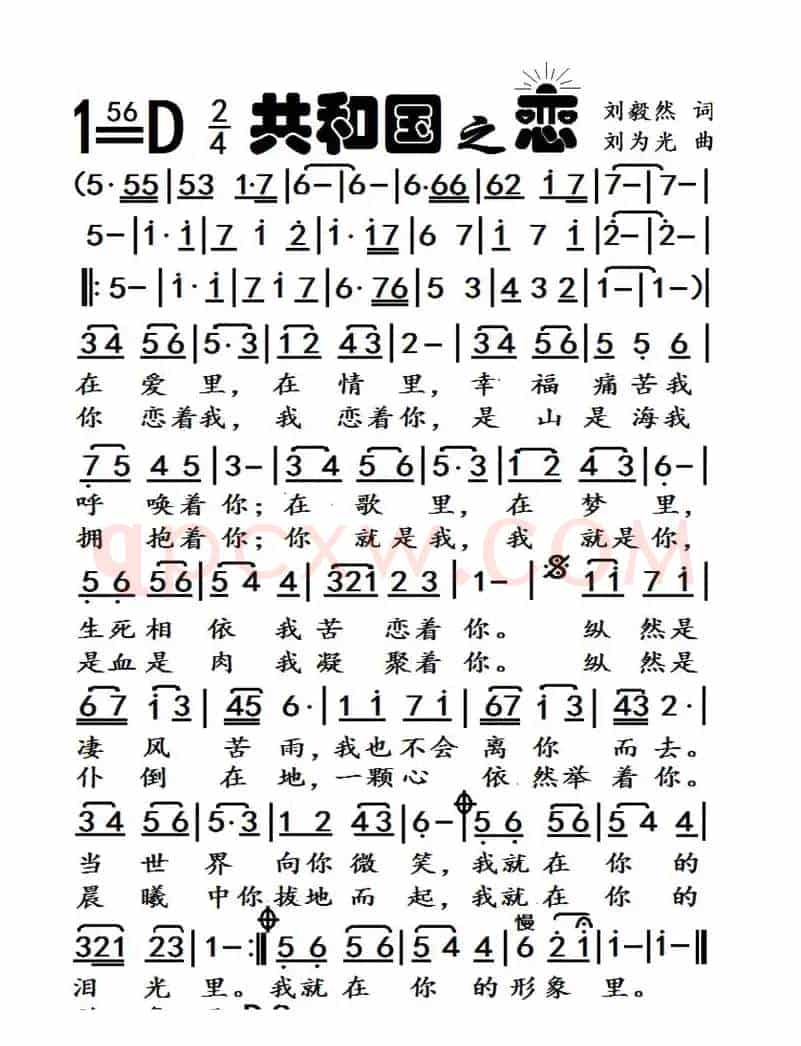 1 56 D 2/4 共和国之恋 刘毅然 词
刘为光 曲
(5· 55|53 1·7|6-|6-|6·66|62 1 7|7-|7-|
5-|1· 1|7 1 2|1·17|6 7|1 7 1|2-|2-|
‖:5-|1· 1|7 1 7|6·76|5 3|4 3 2|1-|1-)|
3 4 5 6|5·3|1 2 4 3|2-|3 4 5 6|5 5 6|
在 爱 里，在 情 里，幸 福 痛苦我
你 恋着我，我 恋着你，是 山是海我
7 5 4 5|3-|3 4 5 6|5·3|1 2 4 3|6-|
呼 唤着你；在 歌 里，在 梦 里，
拥 抱着你；你 就是我，我 就是你，
qpcxw.COM
5 6 5 6|5 4 4|321 2 3|1-|1 1 7 1|
生死相 依 我苦 恋着 你。 纵 然是
是血是 肉 我凝 聚着 你。 纵 然是
6 7 1 3|45 6·|1 1 7 1|67 1 3|43 2·|
凄 风 苦 雨，我也不会 离你 而去。
仆 倒 在 地，一颗心 依 然举着你。
3 4 5 6|5·3|1 2 4 3|6-|5 6 5 6|5 4 4|
当 世 界 向你微 笑，我就在 你 的
晨 曦 中你拔地而 起，我就在 你 的
慢
321 23|1-:‖5 6 5 6|5 4 4|6 2 1|1-|1-‖
泪 光 里。我就在 你 的形象 里。